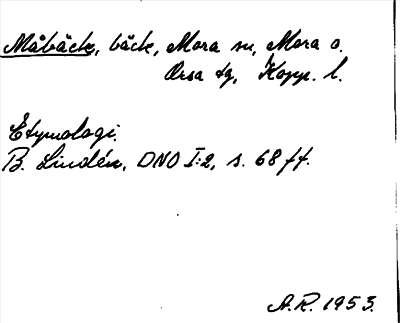 Måbäck, bäck, Mora sn, Mora o.
Orsa tg, Kopp. l.
Etymologi.
B. Lindén, DNO I:2, s. 68 ff.
A.R. 1953.